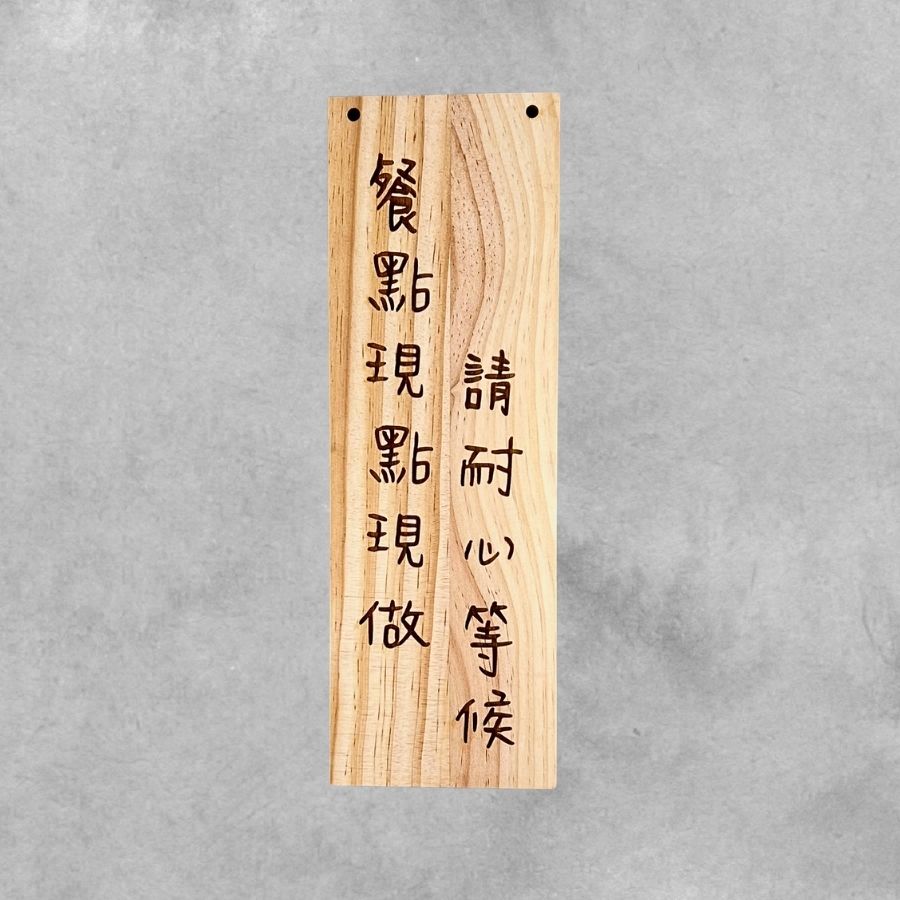 餐點現點現做
請耐心等候